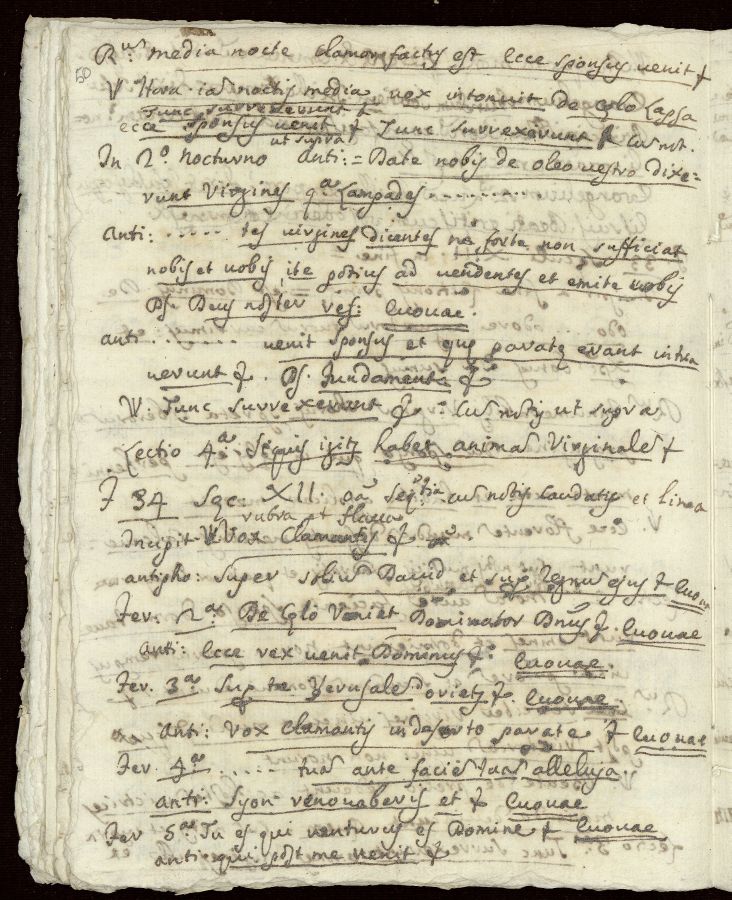 Rus: media nocte clamor factus est Ecce sponsus venit &
50
V Hora iaʃ noctis media vox intonuit De cęlo Lassa
Tunc surrexerunt &
ecce sponsus venit & Tunc surrexerunt & cuʃ not.
ut supra
In 2.º Nocturno Anti: = Date nobis de oleo vestro dixe=
runt Virgines qª Lampades ..........
Anti: ..... tes virgines dicentes ne forte non sufficiat
nobis et vobis, ite potius ad vendentes et emite vobis
Ps. Deus noster ref: Euouae.
anti ......... venit sponsus et quę paratę erant intra
verunt &. Ps. Fundamenta &
V: Tunc surrexerunt &: cuʃ notis ut supra
Lectio 4ª Sequis igit habet animas Virginales &
F 34 Sęc: XII. cuʃ notis caudatis et linea
rubra et flava
Incipit Vox Clamantis &
antipho: Super soliu David et sup regnu ejus & Euou
Fer. 2ª De Cęlo Veniet Dominator Dnus &. Euouae
Anti: Ecce rex venit Dominus &: Euouae.
Fer. 3ª Sup te Yerusale oriet &. Euouae.
Anti: Vox Clamantis in deserto parate & Euouae
Fer. 4ª ..... tuaʃ ante facie tuaʃ alleluja.
anti: Syon renovaberis et & Euouae
Fer 5ª Tu es qui venturus es Domine & Euouae
anti qui post me venit &